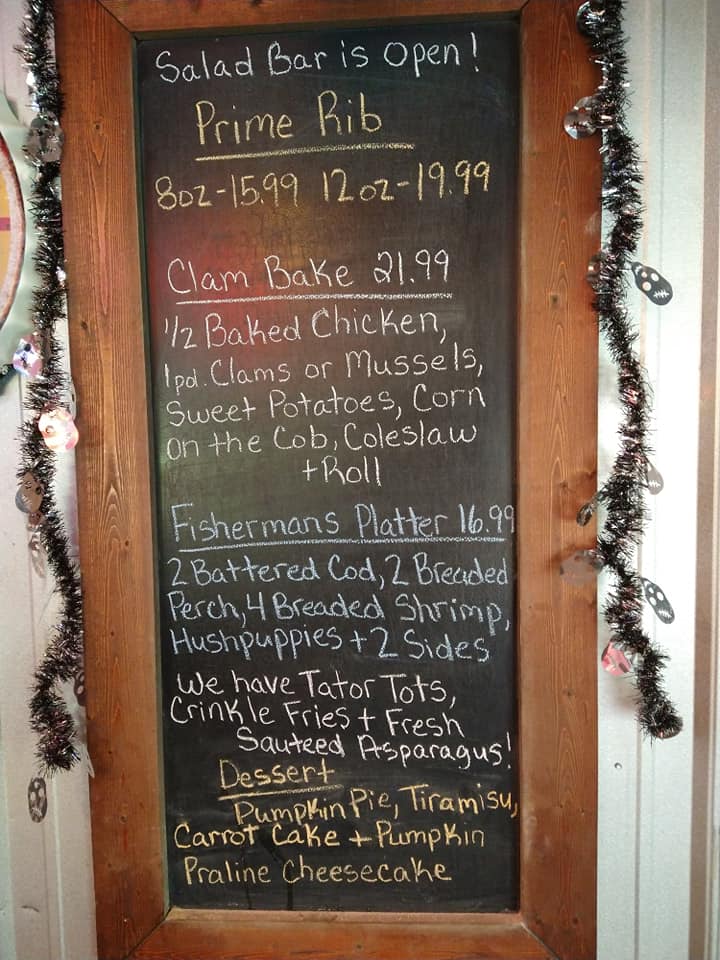 Salad Bar is Open!
Prime Rib
8oz-15.99 12oz-19.99
Clam Bake 21.99
1/2 Baked Chicken,
1pd. Clams or Mussels,
Sweet Potatoes, Corn
on the Cob, Coleslaw
+Roll
Fishermans Platter 16.99
2 Battered Cod, 2 Breaded
Perch, 4 Breaded Shrimp,
Hushpuppies + 2 Sides
We have Tator Tots,
Crinkle Fries + Fresh
Sauteed Asparagus!
Dessert
Pumpkin Pie, Tiramisu,
Carrot Cake + Pumpkin
Praline Cheesecake